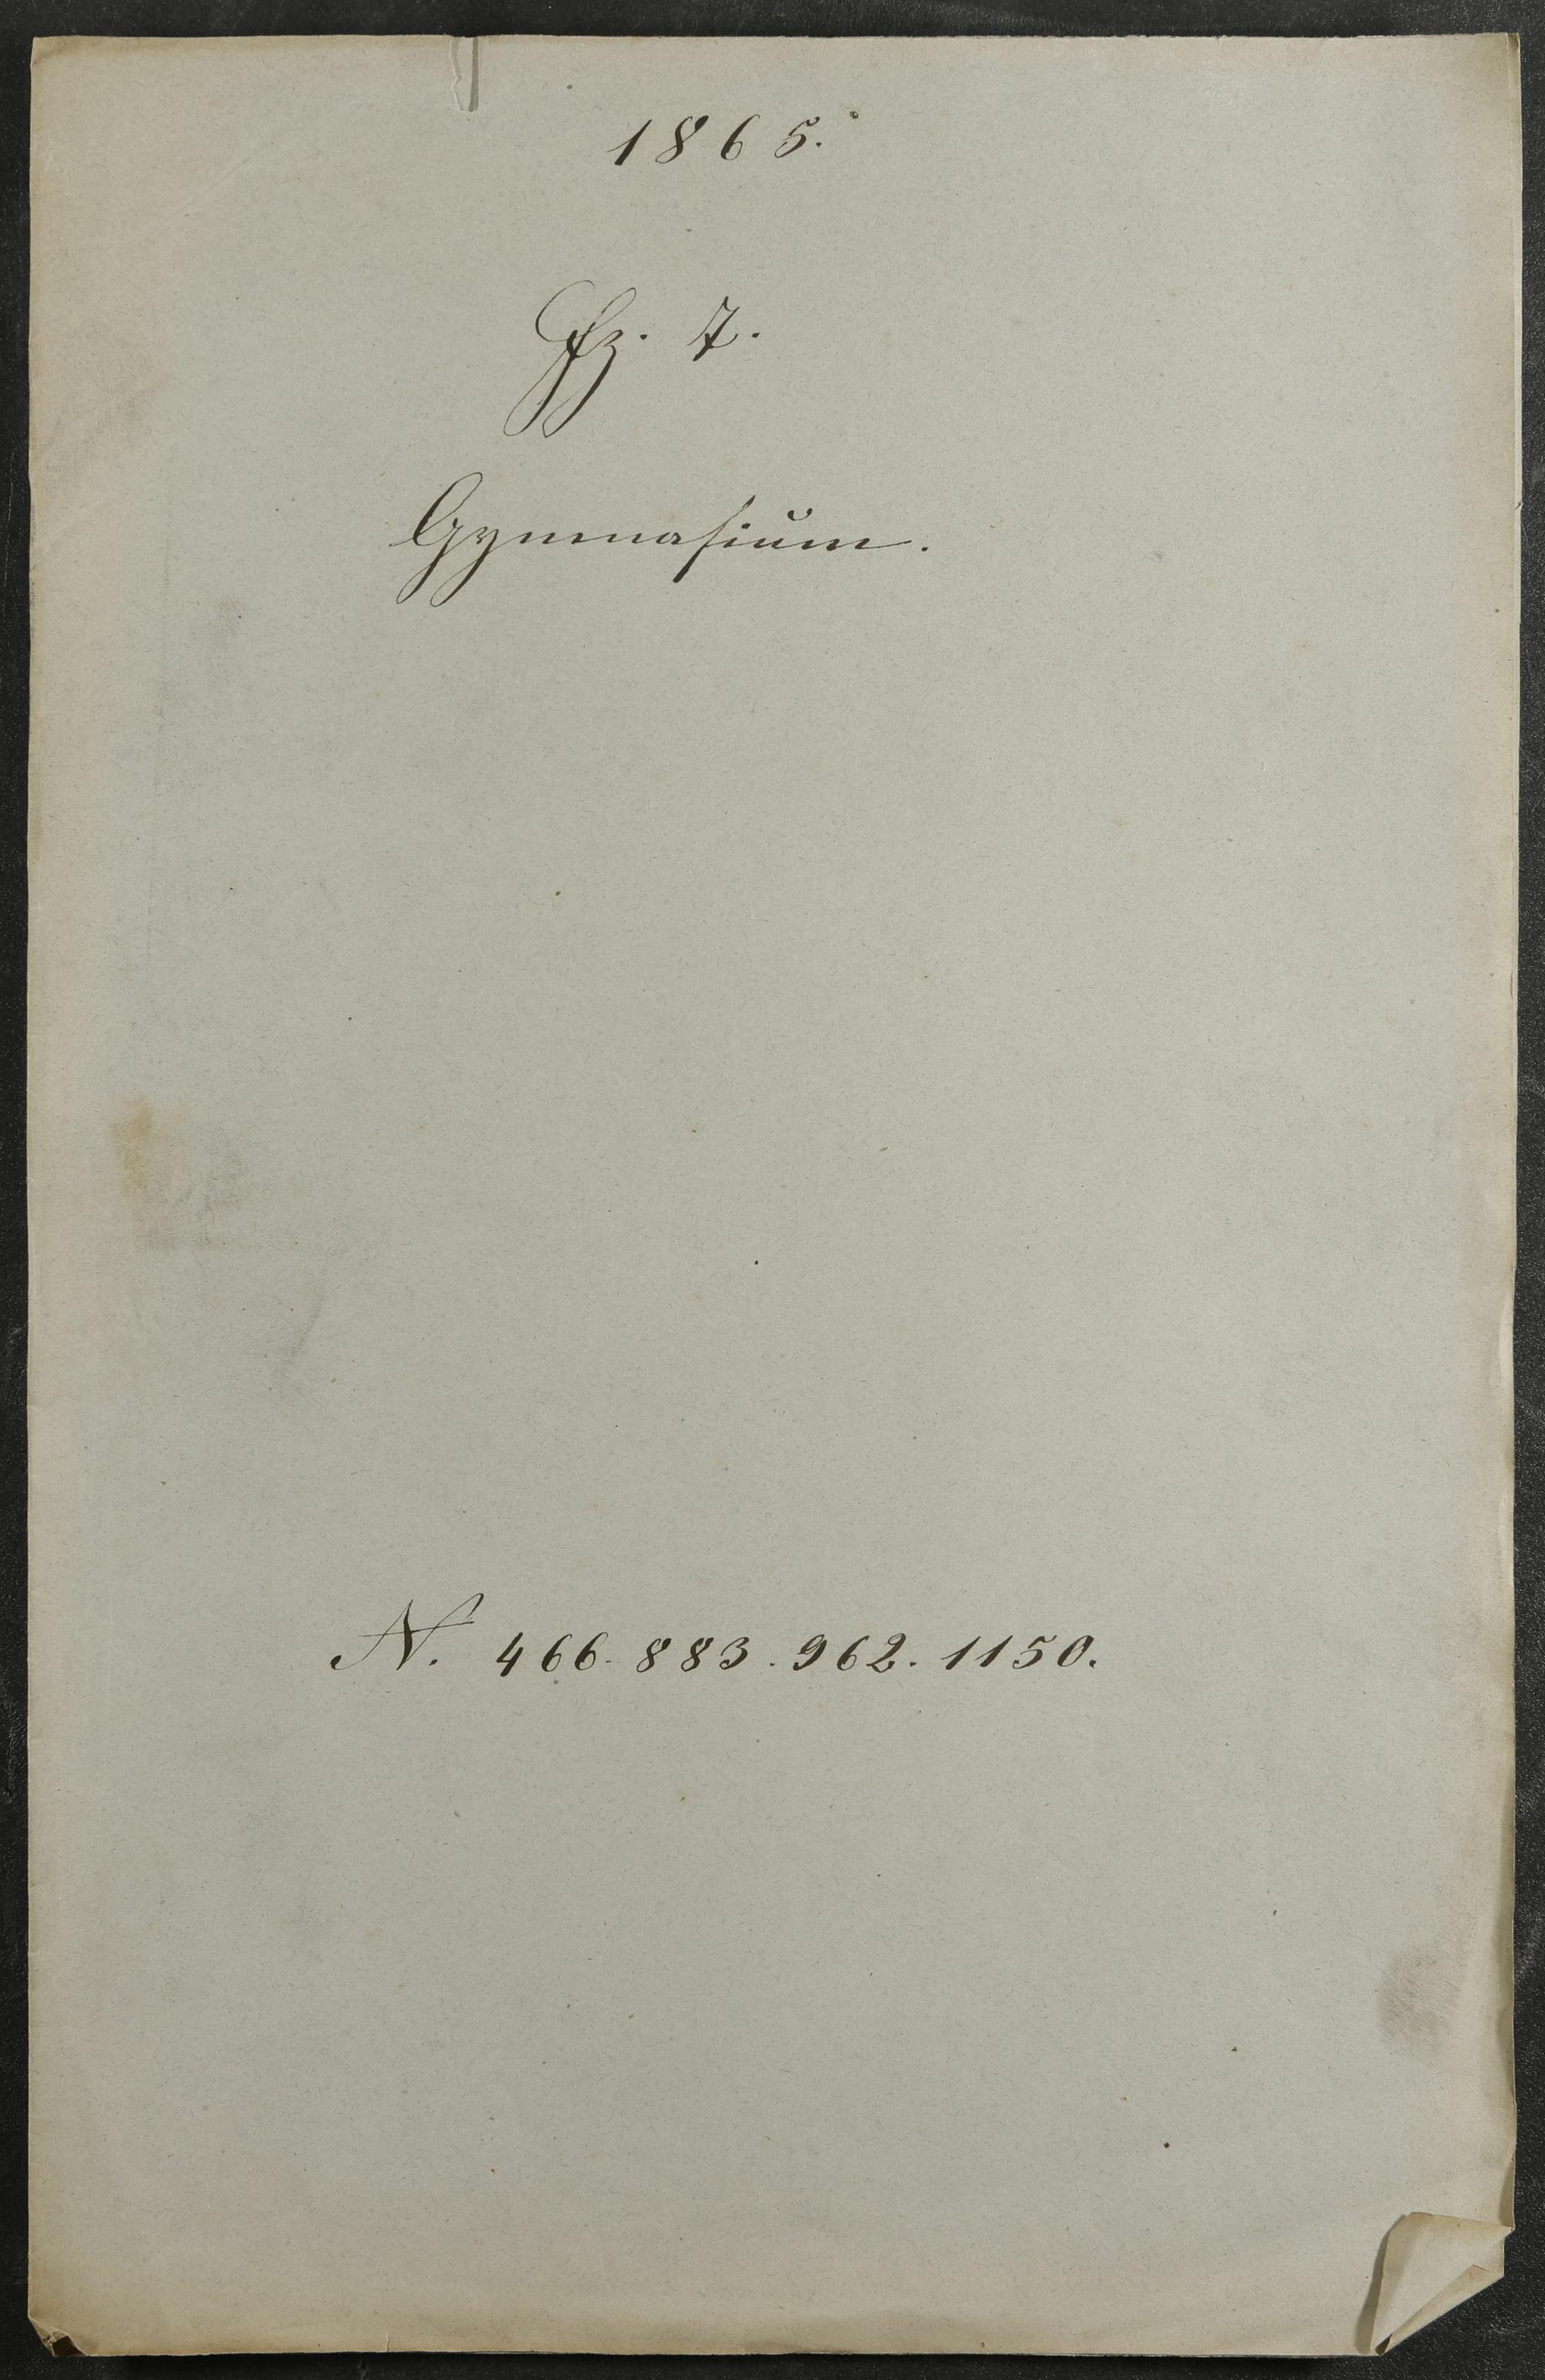 1865.
Fz. 7.
Gymnasium.
N. 466. 883. 962. 1150.